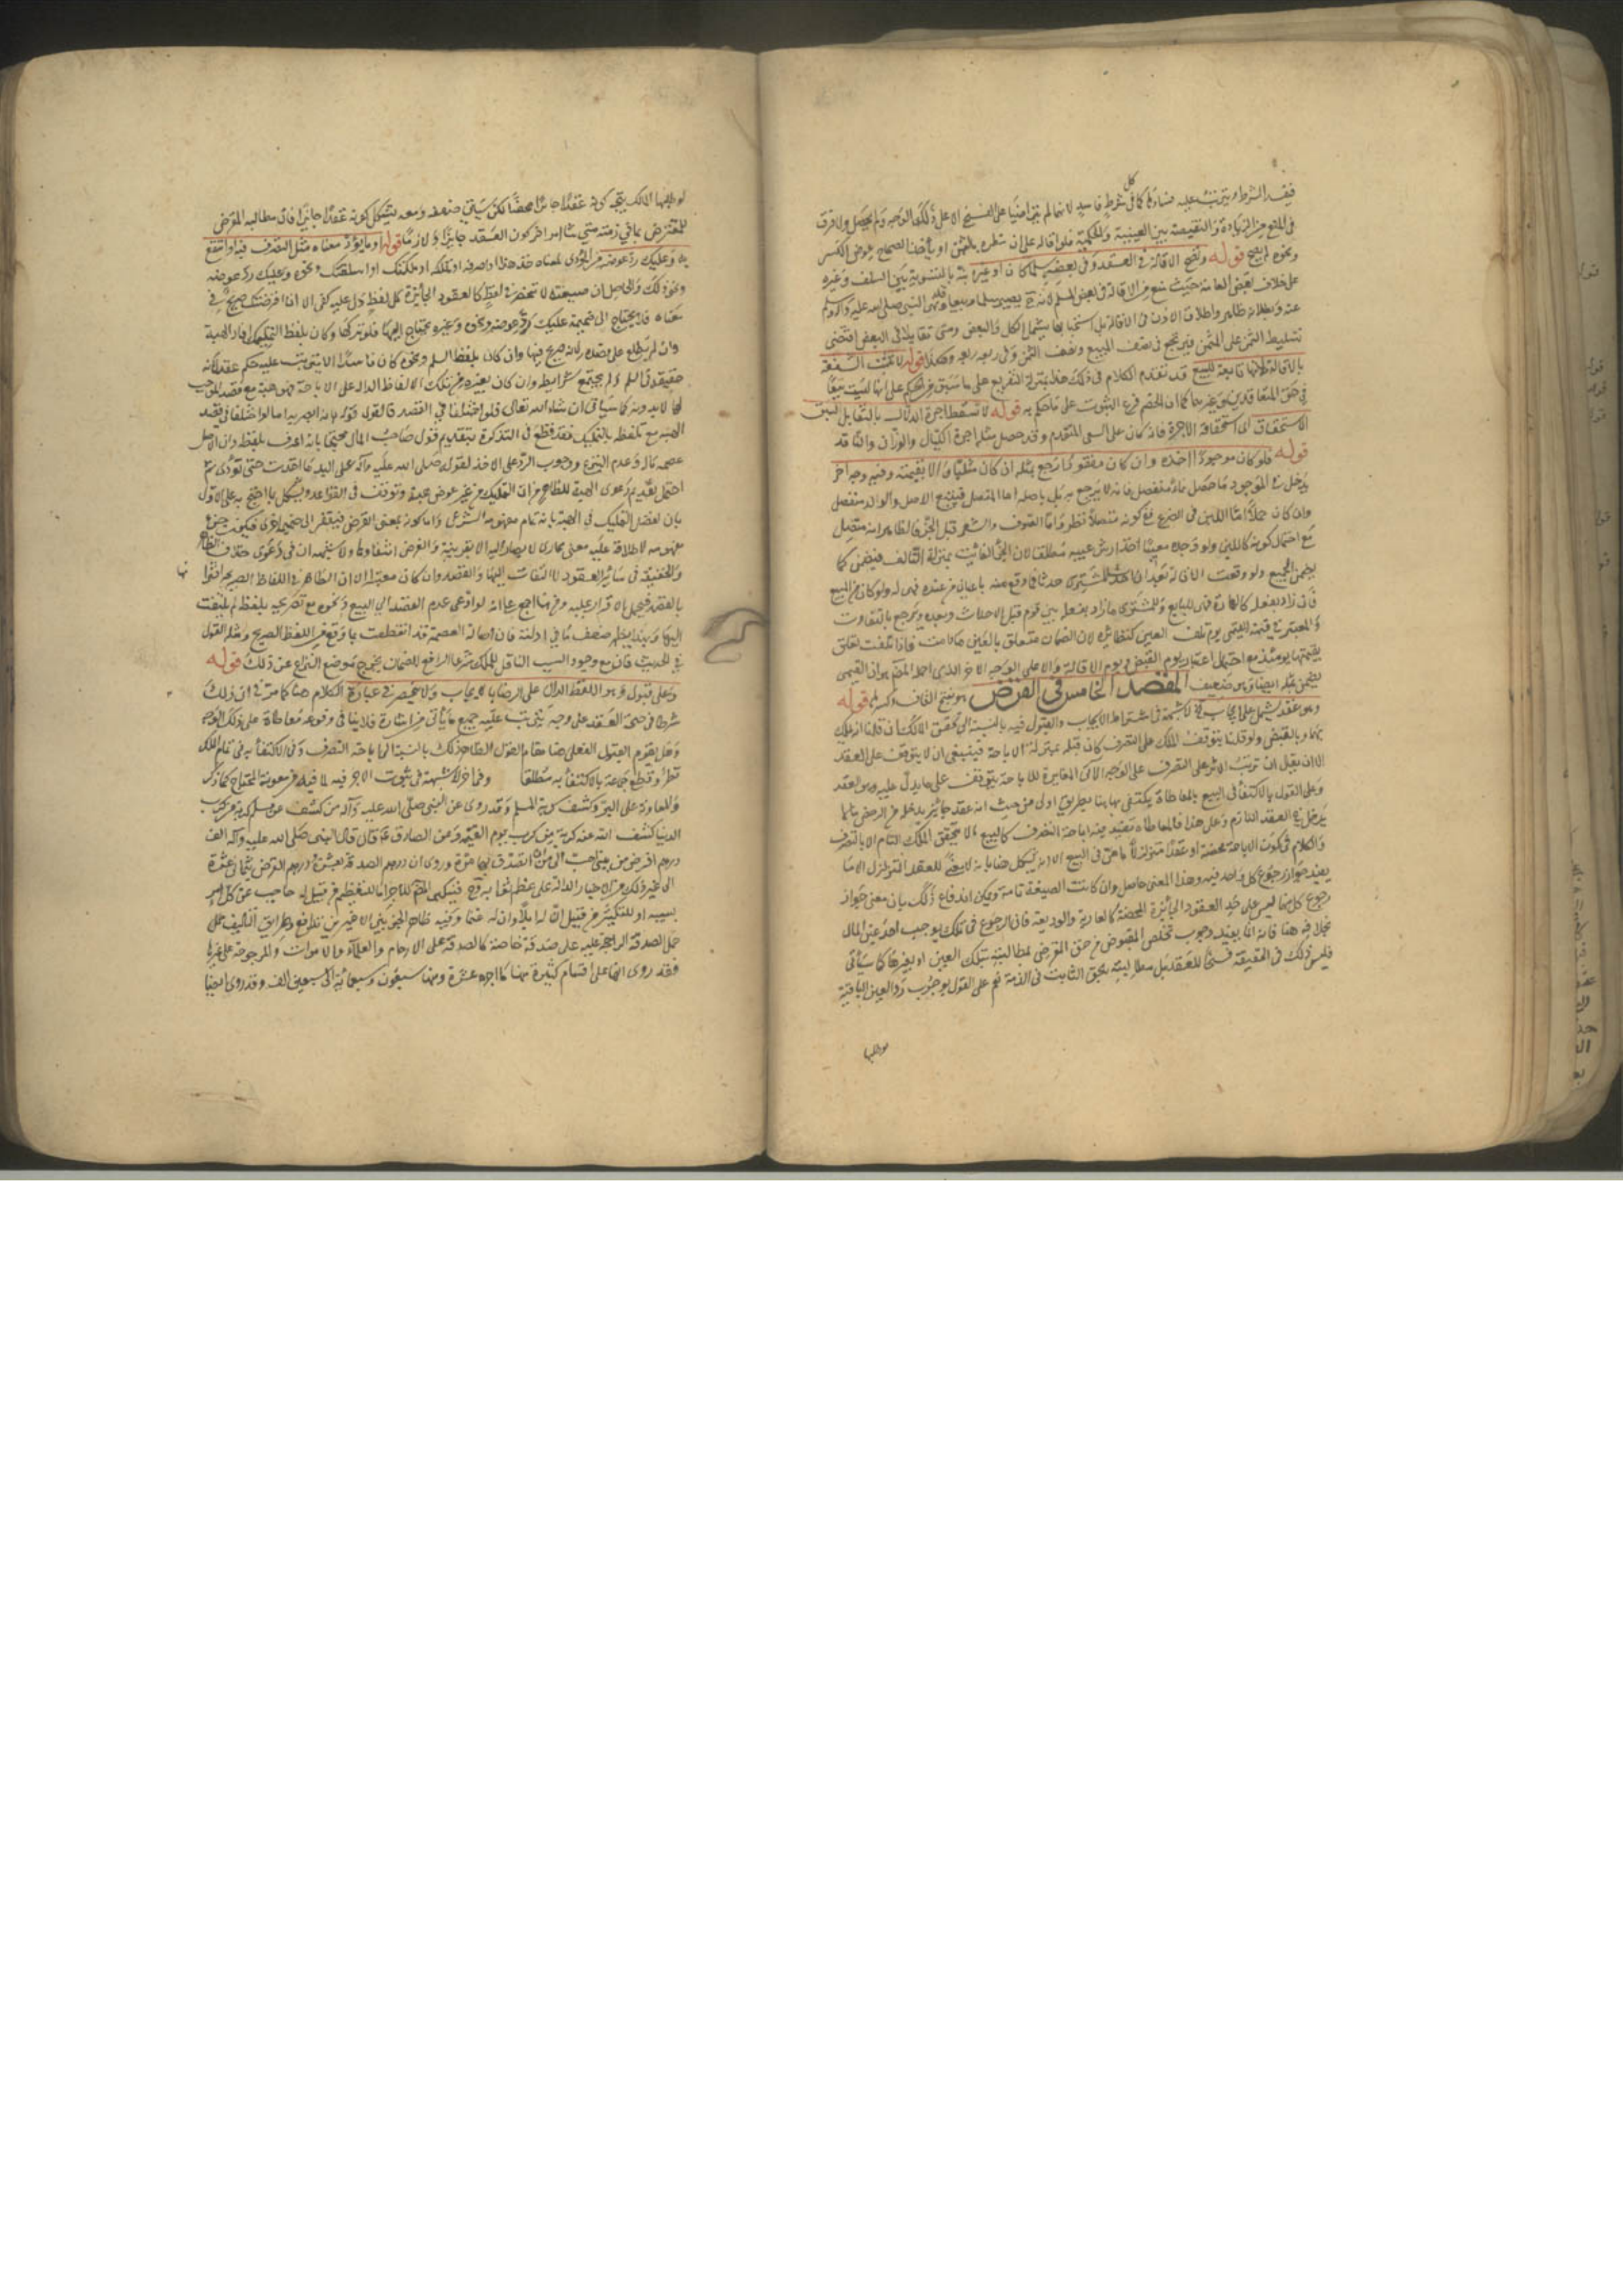 كل
فيفسد الشرط ويترتب عليه فساد كما في شرط فاسد لانهما لم يتراضيا على الفسخ الا على ذلك الوجه ولم يحصل ولا فرق
في المنع من الزيادة والنقيصة بين العينية والحكمية فلو اقاله على ان ينظره بالثمن او يأخذ الصحاح عوض المكسر
ونحوه لم يصح قوله وتصح الاقالة في العقد وفي بعضه سلما كان او غيره نبه بالتسوية بين السلف وغيره
على خلاف بعض العامة حيث منع من الاقالة في بعض السلم لانه يصير سلما وبيعا وقد نهى النبي صلى الله عليه وآله وسلم
عنه وبطلانه ظاهر واطلاق الاذن في الاقالة بل استحبابها يشمل الكل والبعض ومتى تقايلا في البعض اقتضى
تقسيط الثمن على المثمن فيرجع في نصف المبيع ونصف الثمن وفي ربعه ربعه وهكذا قوله لا تثبت الشفعة
بالاقالة لانها تابعة للبيع قد تقدم الكلام في ذلك هذا بمنزلة التفريع على ما سبق من الحكم على انها ليست بيعا
في حق المتعاقدين وغيرهما كما ان الحصر فرع الثبوت على ما حكم به قوله لا تسقط اجرة الدلال بالتقايل لسبق
الاستحقاق اي استحقاقه الاجرة فانه كان على السعي المتقدم وقد حصل مثله اجرة الكيال والوزان والناقد
قوله فلو كان موجودا اخذه وان كان مفقودا رجع بمثله ان كان مثليا والا بقيمته وفيه وجه آخر
يدخل في الموجود ما حصل نماء منفصل فانه لا يرجع به بل باصله اما المتصل فيتبع الاصل والولد منفصل
وان كان حملا اما اللبن في الضرع ففي كونه متصلا نظر واما الصوف والشعر قبل الجز فالظاهر انه متصل
مع احتمال كونه كاللبن ولو وجده معيبا اخذ ارش عيبه مطلقا لان الجزء الفائت بمنزلة التالف فيضمن كما
يضمن الجميع ولو وقعت الاقالة بعد
فان زاد بفعله كالعمارة فهي للبايع وللمشتري ما زاد بفعله بين قوم قبل الاحداث وبعده ويرجع بالتفاوت
والمعتبر في قيمة القيمي يوم تلف العين كنظائره لان الضمان متعلق بالعين ما كانت فاذا تلفت تعلق
بقيمتها يومئذ مع احتمال اعتبار يوم القبض ويوم الاقالة والا على الوجه الاخر الذي اجمله المصنف هو ان القيمي
يضمن بمثله ايضا وهو ضعيف المقصد الخامس في القرض هو بفتح القاف وكسرها قوله
وهو عقد يشتمل على ايجاب لا شبهة في اشتراط الايجاب والقبول فيه بالنسبة الى تحقق الملك ان قلنا انه يملك
بهما وبالقبض ولو قلنا يتوقف الملك على التصرف كان قبله بمنزلة الاباحة فينبغي ان لا يتوقف على العقد
الا ان يقبل ان ترتب الاثر على التصرف على الوجه الآتي المغايرة للاباحة يتوقف على ما يدل عليه وهو العقد
وعلى القول بالاكتفاء في البيع بالمعاطاة يكتفى بها هنا بطريق اولى من حيث انه عقد جائز يدخله من الرخص ما لا
يدخل في العقد اللازم وعلى هذا فالمعاطاة تفيد فيه اباحة التصرف كالبيع ولا يتحقق الملك التام الا بالتصرف
والكلام في كون الاباحة محضة او عقدا متزلزلا ما مر في البيع الا انه يشكل هنا بانه لا معنى للعقد المتزلزل الا ما
يفيد جواز رجوع كل واحد فيه وهذا المعنى حاصل وان كانت الصيغة تامة ويمكن اندفاع ذلك بان معنى جواز
رجوع كل منهما ليس على حد العقود الجائزة المحضة كالعارية والوديعة فان الرجوع في تلك يوجب اخذ عين المال
بخلافه هنا فانه انما يفيد وجوب تخلص المقبوض من حق المقرض بمطالبته بتلك العين او بغيرها كما سيأتي
فليس ذلك في الحقيقة فسخا للعقد بل مطالبته بحق الثابت في الذمة نعم على القول بوجوب رد العين الباقية
لو طلبها
لو طلبها المالك يتجه كونه عقدا جائزا محضا لكن سيأتي ضعفه ومعه يشكل كونه عقدا جايزا فان مطالبة المقرض
للمقترض بما في ذمته متى شاء امر اخر كون العقد جايزا او لازما قوله او ما يؤدي معناه مثل التصرف فيه او انتفع
به وعليك رد عوضه من المؤدى لمعناه خذ هذا او اصرفه او تملكه او ملكتك او اسلفتك ونحوه وعليك رد عوضه
ونحو ذلك والحاصل ان صيغته لا تنحصر في لفظ كالعقود الجائزة بل كل لفظ دل عليه كفى الا ان اقرضتك صريح في
معناه فلا يحتاج الى ضميمة عليك رد عوضه ونحوه وغيره يحتاج اليها فلو تركها وكان بلفظ التمليك افاد الهبة
وان لم يطلع على قصده لانه صريح فيها وان كان بلفظ السلم ونحوه كان فاسدا لا يترتب عليه حكم عقد لانه
حقيقة في السلم ولم يجتمع شرايطه وان كان بغيره من تلك الالفاظ الدالة على الاباحة فهو هبة مع قصد الموجب
لها لا بدونه كما سيأتي ان شاء الله تعالى فلو اختلفا في القصد فالقول قوله لانه ابصر به اما لو اختلفا في قصد
الهبة مع تلفظه بالتمليك فقد قطع في التذكرة بتقديم قول صاحب المال محتجا بانه اعرف بلفظه وان الاصل
عصمة ماله وعدم التبرع ووجوب الرد على الآخذ لقوله صلى الله عليه وآله على اليد ما اخذت حتى تؤدي ثم
احتمل تقديم دعوى الهبة للظاهر من ان التمليك من غير عوض هبة وتوقف في القواعد ويشكل ما احتج به على الاول
بان لفظ التمليك في الهبة بانه تمام مفهومه الشرعي واما كونه بمعنى القرض فيفتقر الى ضميمة اخرى فيكون جزء
مفهومه لاطلاقه عليه معنى مجازي لا يصار اليه الا بقرينة والغرض انتفاؤها ولا شبهة ان في دعوى خلاف الظاهر
والحقيقة في سائر العقود لا التفات اليها والقصد وان كان معتبرا الا ان الظاهر في اللفاظ الصريحة اقترانها
بالقصد فيحمل الاقرار عليه ومن ثم اجمع على انه لو ادعى عدم القصد الى البيع ونحوه مع تصريحه بلفظه لم يلتفت
اليها وبهذا يظهر ضعف ما في ادلته فان اصالة العصمة قد انقطعت بما وقع من اللفظ الصريح ومثله القول
في الحديث فانه مع وجود السبب الناقل للملك شرعا الرافع للضمان يخرج موضع النزاع عن ذلك قوله
وعلى قبول وهو اللفظ الدال على الرضا بالايجاب ولا ينحصر في عبارة الكلام هنا كما مر في ان ذلك
شرط في صحة العقد على وجه يترتب عليه جميع ما يأتي من اشارة فلا ينافي وقوعه معاطاة على ذلك الوجه
وهل يقوم القبول الفعلي هنا مقام القول الظاهر ذلك بالنسبة الى اباحة التصرف وفي الاكتفاء به في تمام الملك
نظر وقطع جماعة بالاكتفاء به مطلقا وفي اخر لا شبهة في ثبوت الاجر فيه لما فيه من معونة المحتاج كما ذكر
والمعاونة على البر وكشف كربة المسلم وقد روي عن النبي صلى الله عليه وآله من كشف عن مسلم كربة من كرب
الدنيا كشف الله عنه كربة من كرب يوم القيمة وعن الصادق ع قال قال النبي صلى الله عليه وآله الف
درهم اقرضها مرتين احب الى من ان اتصدق بها مرة وروي ان درهم الصدقة بعشرة ودرهم القرض بثمانية عشرة
الى غير ذلك من الاخبار الدالة على عظم ثوابه
بسببه او للتكثير من قبيل ان له ابلا وان له غنما
حمل الصدقة الراجحة عليه على صدقة خاصة كالصدقة على الارحام والعلماء والاموات والمرجوحة على غيرها
فقد روي انها على اقسام كثيرة منها كما اجره عشرة ومنها سبعون وسبعمائة الى سبعين الف وقد روي ايضا